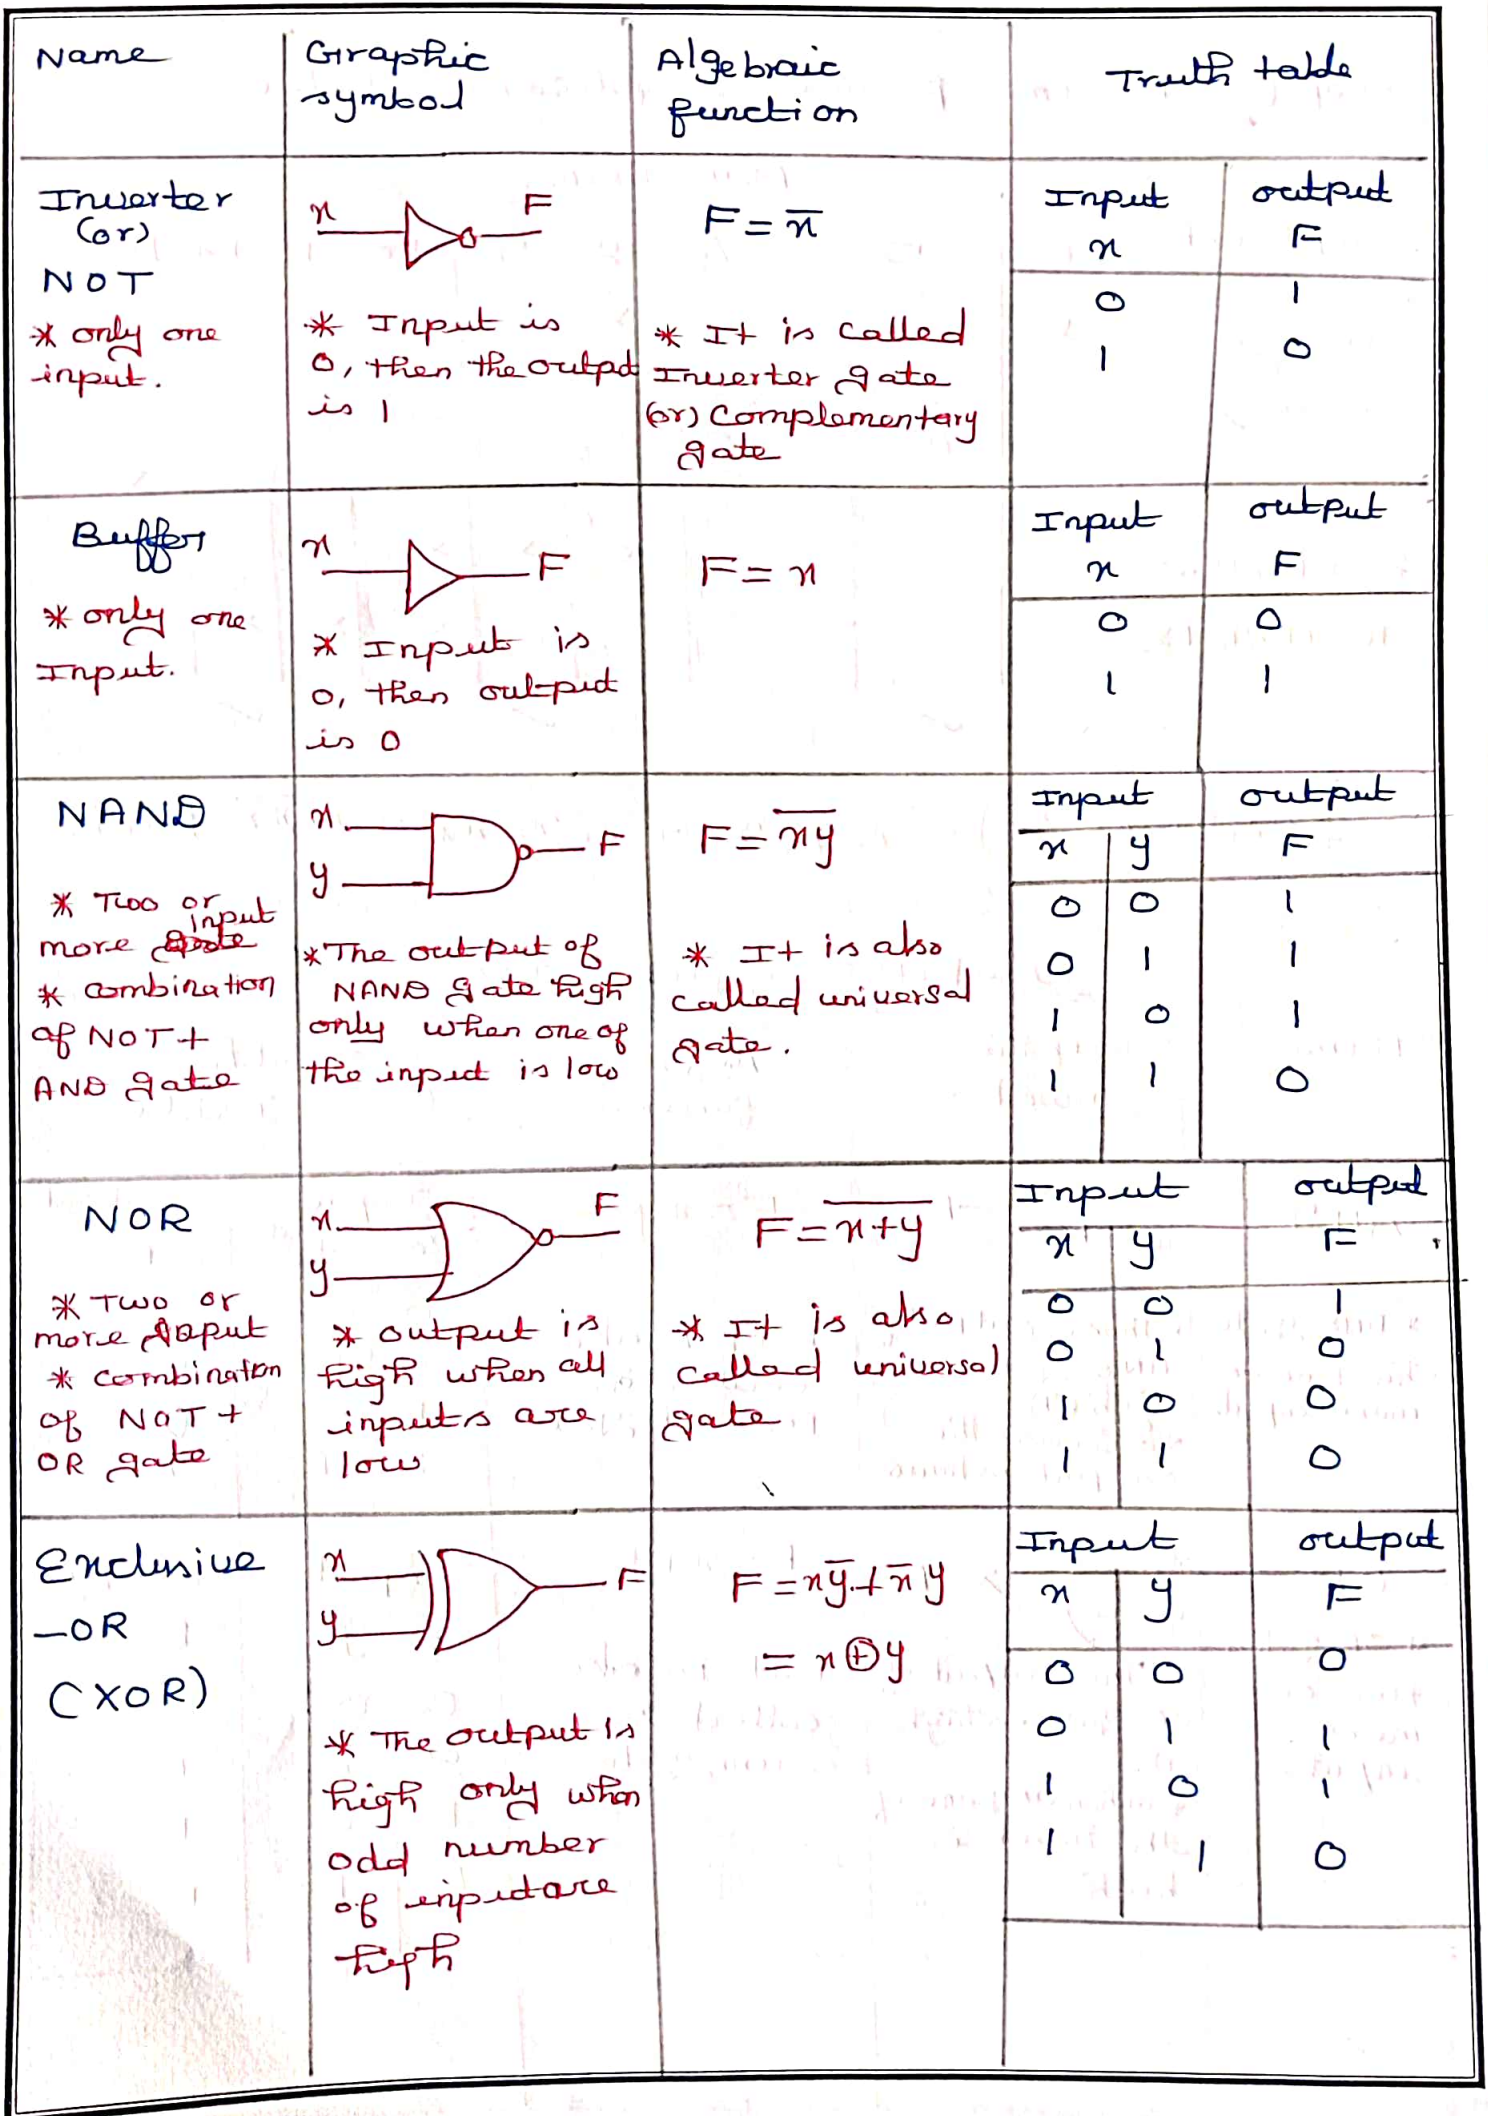 Name
Graphic
symbol
Algebraic
function
Truth table
Inverter
(or)
NOT
* only one
input.
x F
* Input is
0, then the output
is 1
F = x̅
* It is called
Inverter gate
(or) Complementary
gate
Input output
x F
0 1
1 0
Buffer
* only one
Input.
x F
* Input is
0, then output
is 0
F = x
Input output
x F
0 0
1 1
NAND
* Two or
input
more
* combination
of NOT +
AND gate
x
y
F
* The output of
NAND gate high
only when one of
the input is low
F = x̅y̅
* It is also
called universal
gate.
Input output
x y F
0 0 1
0 1 1
1 0 1
1 1 0
NOR
* Two or
more Input
* combination
of NOT +
OR gate
x
y
F
* output is
high when all
inputs are
low
F = x̅+̅y̅
* It is also
called universal
gate
Input output
x y F
0 0 1
0 1 0
1 0 0
1 1 0
Exclusive
-OR
(XOR)
x
y
F
* The output is
high only when
odd number
of input are
high
F = xy̅ + x̅y
= x⊕y
Input output
x y F
0 0 0
0 1 1
1 0 1
1 1 0